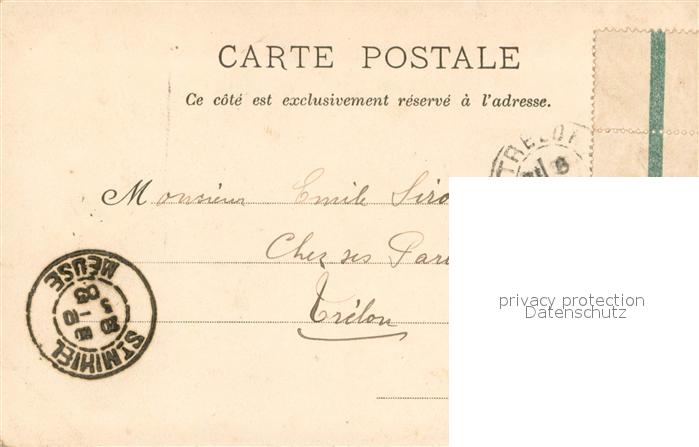 CARTE POSTALE
Ce côté est exclusivement réservé à l'adresse.
TRELON
Monsieur Emile
Chez ses
Trélon
ST MIHIEL
MEUSE
privacy protection
Datenschutz